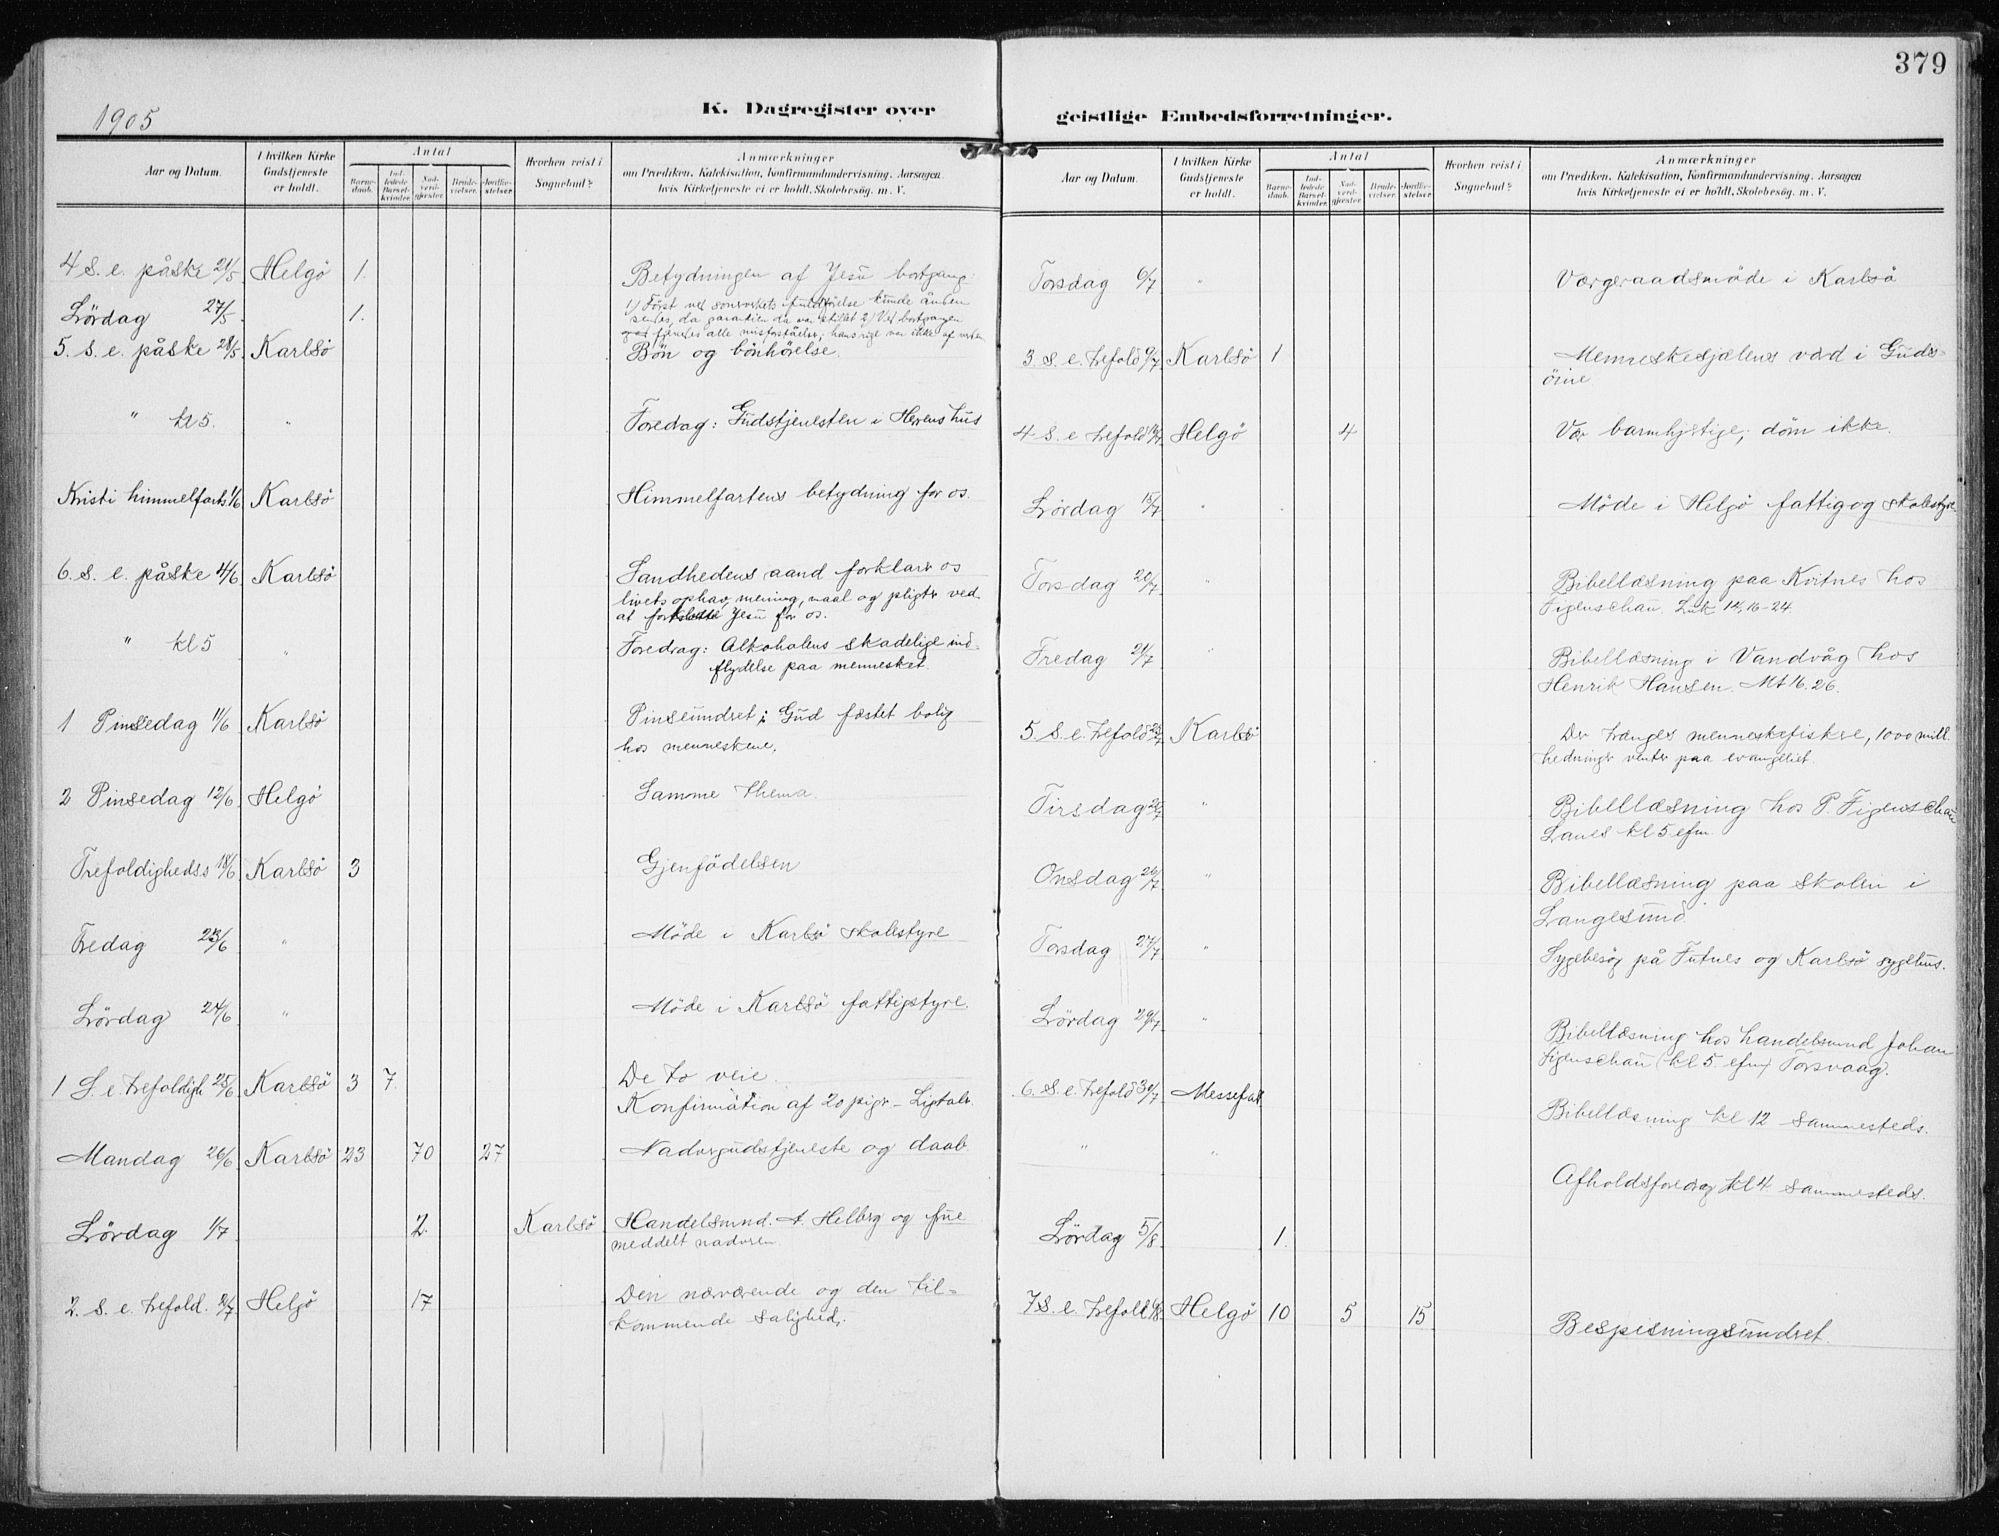 379
1905
K. Dagregister over
geistlige Embedsforretninger.
Aar og Datum. I hvilken Kirke Gudstjeneste er holdt. Antal Barnedaab. Indledede Barselkvinder. Nadverdgjæster. Brudevielser. Jordfæstelser. Hvorhen reist i Sognebud? Anmærkninger
om Prædiken, Katekisation, Konfirmandundervisning. Aarsagen
hvis Kirketjeneste ei er holdt. Skolebesög. m. V.
4 S. e. påske 21/5 Helgö 1. Betydningen af Jesu bortgang:
sendes, da garantien da var stillet 2) Ved bortgangen
Lördag 27/5 1.
5. S. e. påske 28/5 Karlsö Bön og bönhörelse.
" kl 5. " Foredrag: Gudstjenesten i Herrens hus
Kristi himmelfarts 1/6 Karlsö Himmelfartens betydning for os.
6. S. e. påske 4/6 Karlsö Sandhedens aand forklarer os
livets ophav, mening, maal og pligter ved
at Jesu for os.
" kl 5 " Foredrag: Alkoholens skadelige ind-
flydelse paa mennesket.
1 Pinsedag 11/6 Karlsö Pinseundret; Gud fæstet bolig
hos menneskene.
2 Pinsedag 12/6 Helgö Samme thema.
Trefoldigheds.s 18/6 Karlsö 3 Gjenfödelsen
Fredag 23/6 " Möde i Karlsö skolestyre
Lördag 24/6 " Möde i Karlsö fattigstyre.
1 S. e. trefoldigh 25/6 Karlsö 3 7. De to veie.
Konfirmation af 20 piger - Ligtale.
Mandag 26/6 Karlsö 23 70 27 Nadvergudstjeneste og daab.
Lördag 1/7 2. Karlsö Handelsmnd. A. Helberg og frue
meddelt nadveren
2. S. e. trefold. 2/7 Helgö 17 Den nærværende og den til-
kommende salighed.
Aar og Datum. I hvilken Kirke Gudstjeneste er holdt. Antal Barnedaab. Indledede Barselkvinder. Nadverdgjæster. Brudevielser. Jordfæstelser. Hvorhen reist i Sognebud? Anmærkninger
om Prædiken, Katekisation, Konfirmandundervisning. Aarsagen
hvis Kirketjeneste ei er holdt. Skolebesög. m. V.
Torsdag 6/7 " Værgeraadsmöde i Karlsö
3. S. e. trefold 9/7 Karlsö 1 Menneskesjælens værd i Guds
öine
4 S. e. trefold 16/7 Helgö 4 Vær barmhjertige, döm ikke.
Lördag 15/7 " Möde i Helgö fattig og skolestyre.
Torsdag 20/7 " Bibellæsning paa Kvitnes hos
Figenschau. Luk 14,16-24.
Fredag 21/7 " Bibellæsning i Vandvåg hos
Henrik Hansen. Mt 16.26.
5. S. e. trefold 23/7 Karlsö Der trænges menneskefiskere, 1000 mill.
hedninger venter paa evangeliet.
Tirsdag 25/7 " Bibellæsning hos P. Figenschau
Lanes kl 5 efm.
Onsdag 26/7 " Bibellæsning paa skolen i
Langesund
Torsdag 27/7 " Sygebesög på Futnes og Karlsö sygehus.
Lördag 29/7 " Bibellæsning hos handelsmnd Johan
Figenschau (kl 5. efm) Torsvaag.
6. S. e. trefold 30/7 Messefald Bibellæsning kl 12 sammesteds.
" " Afholdsforedrag kl 4 sammesteds.
Lördag 5/8 1.
7 S. e. trefold 6/8 Helgö 10 5 15 Bespisningsundret.